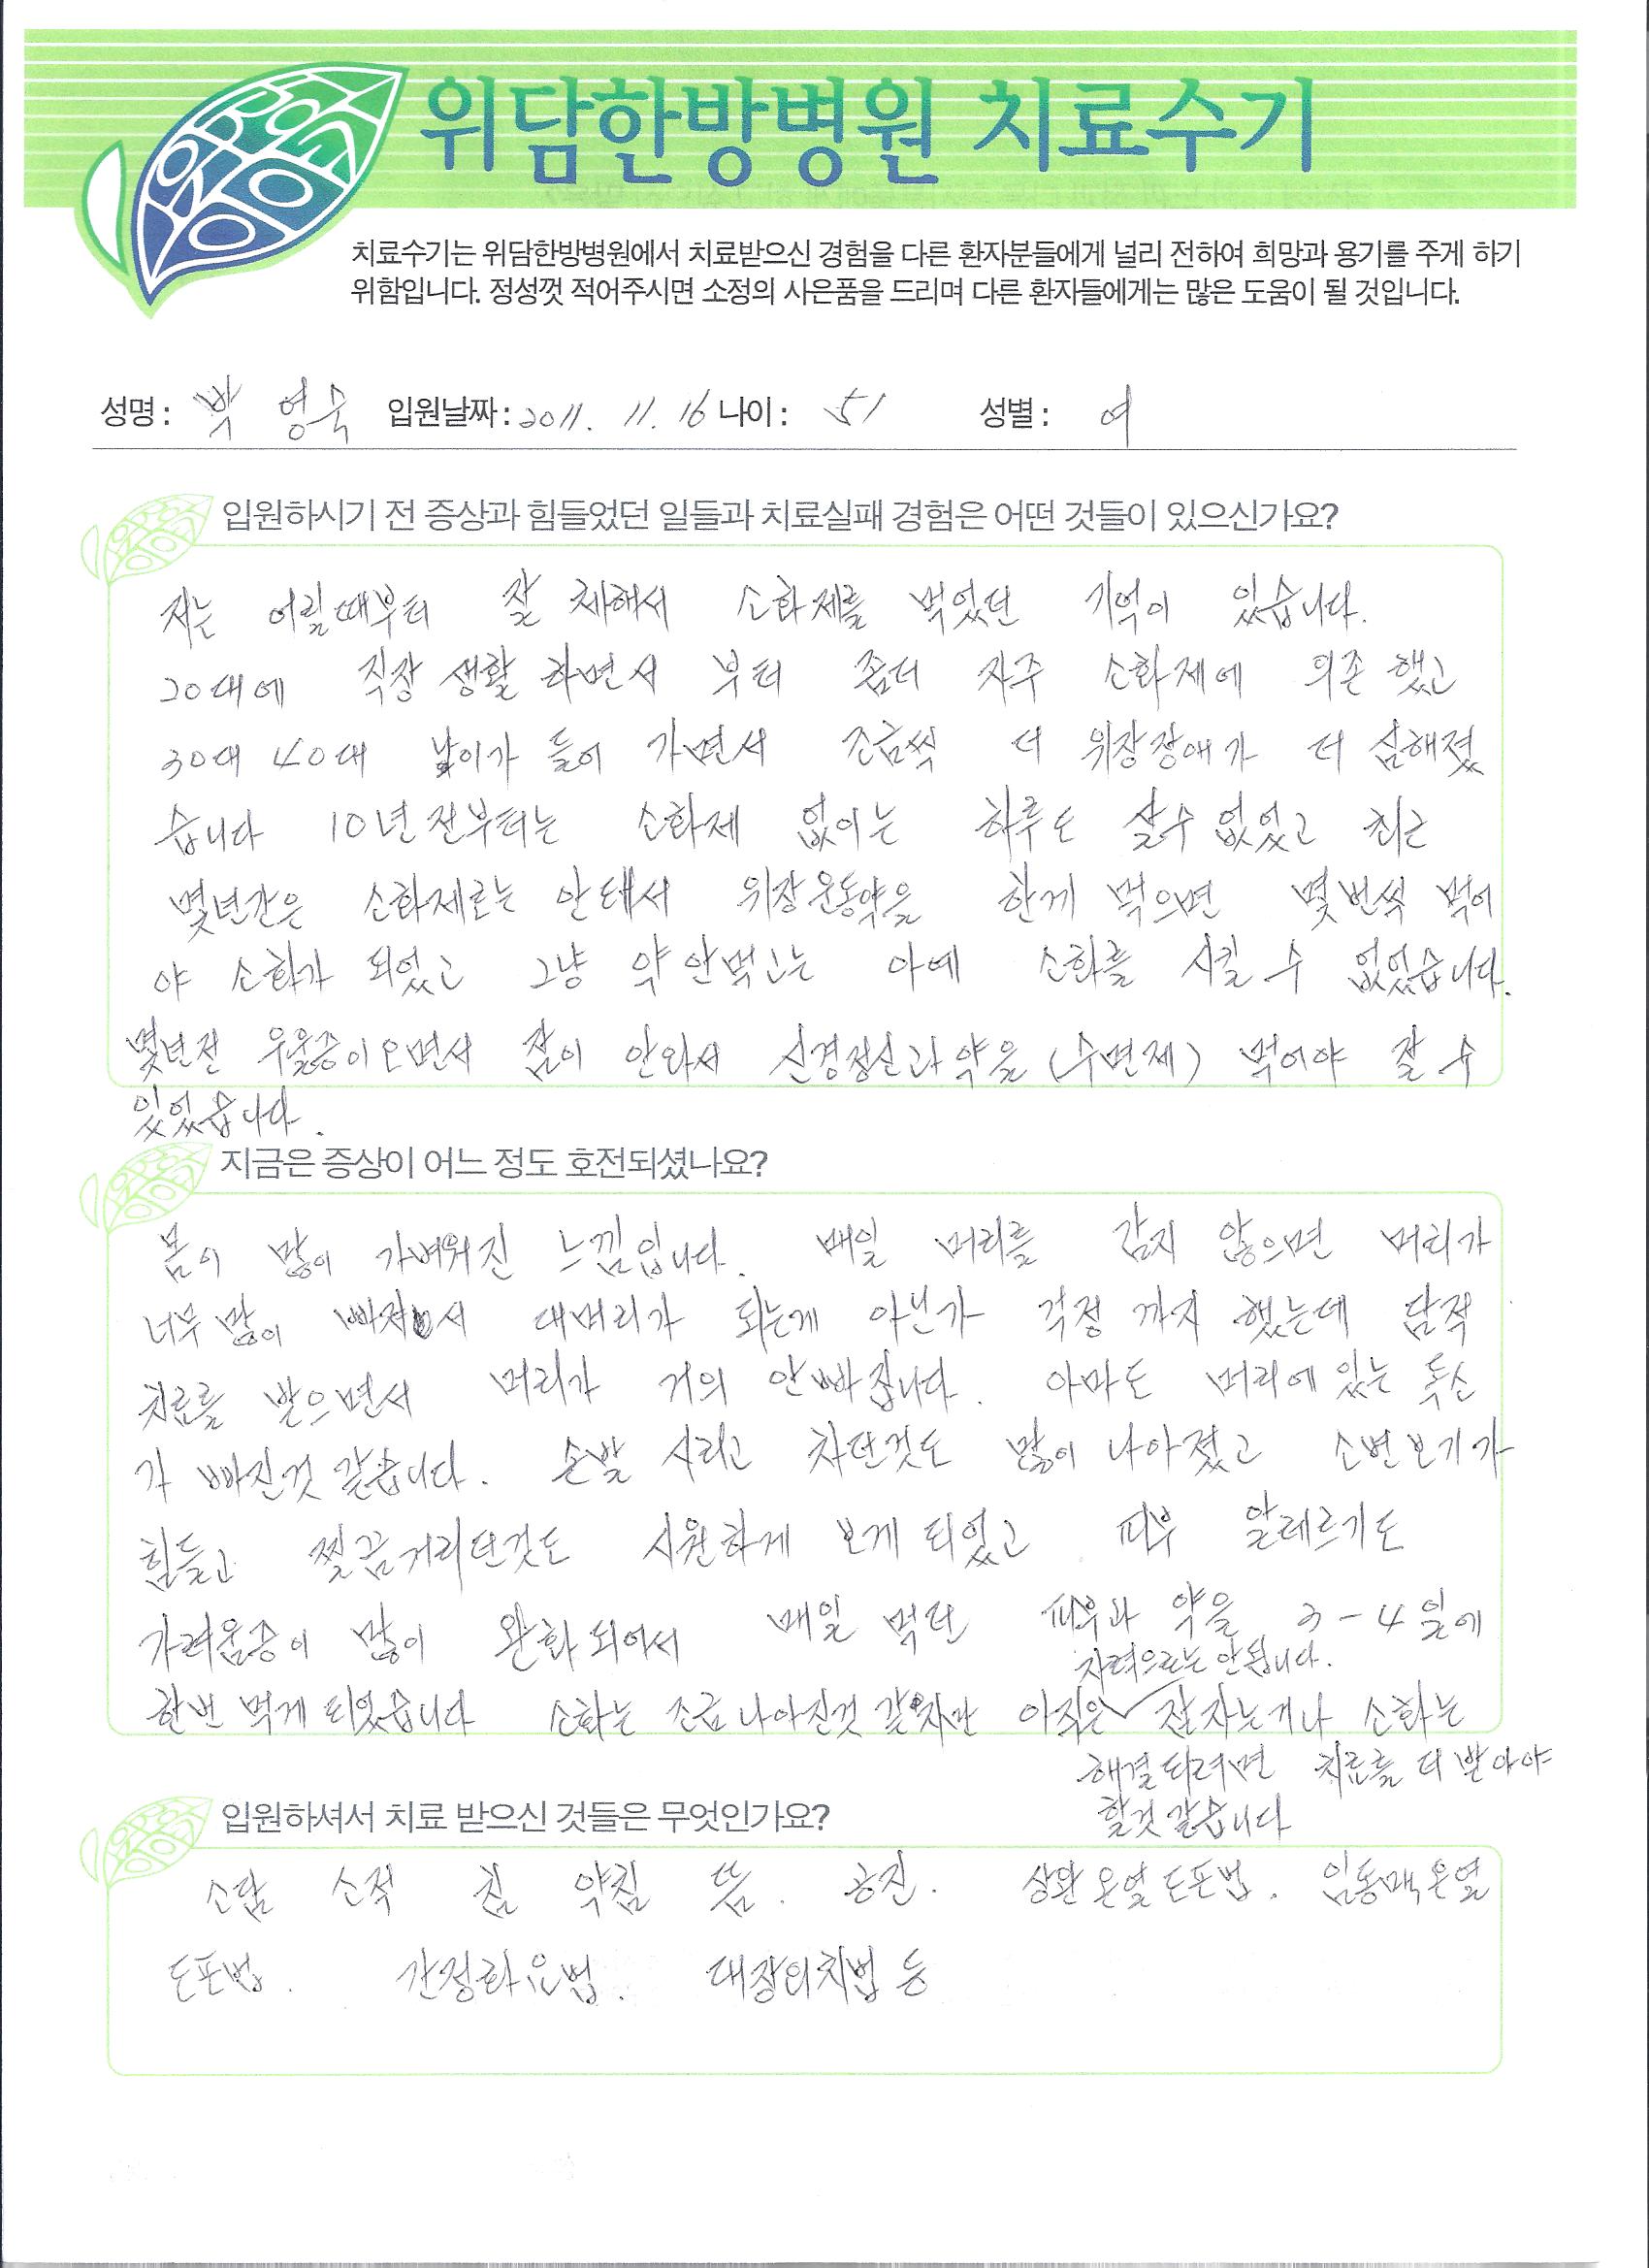 위담한방병원 치료수기
치료수기는 위담한방병원에서 치료받으신 경험을 다른 환자분들에게 널리 전하여 희망과 용기를 주게 하기
위함입니다. 정성껏 적어주시면 소정의 사은품을 드리며 다른 환자들에게는 많은 도움이 될 것입니다.
성명 : 박 영숙 입원날짜 : 2011. 11. 16 나이 : 51 성별 : 여
입원하시기 전 증상과 힘들었던 일들과 치료실패 경험은 어떤 것들이 있으신가요?
저는 어릴때부터 잘 체해서 소화제를 먹었던 기억이 있습니다.
20대에 직장 생활 하면서 부터 좀더 자주 소화제에 의존 했고
30대 40대 나이가 들어 가면서 조금씩 더 위장장애가 더 심해졌
습니다 10년 전부터는 소화제 없이는 하루도 살수 없었고 최근
몇년간은 소화제로는 안돼서 위장운동약을 한끼 먹으면 몇번씩 먹어
야 소화가 되었고 그냥 약 안먹고는 아예 소화를 시킬 수 없었습니다.
몇년전 우울증이오면서 잠이 안와서 신경정신과약을 (수면제) 먹어야 잘 수
있었습니다.
지금은 증상이 어느 정도 호전되셨나요?
몸이 많이 가벼워진 느낌입니다. 매일 머리를 감지 않으면 머리가
너무 많이 빠져서 대머리가 되는게 아닌가 걱정 까지 했는데 담적
치료를 받으면서 머리가 거의 안빠집니다. 아마도 머리에 있는 독소
가 빠진것 같습니다. 손발 시리고 차던것도 많이 나아졌고 소변보기가
힘들고 찔끔거리던것도 시원하게 보게 되었고 피부 알레르기도
가려움증이 많이 완화되어서 매일 먹던 피부과 약을 3-4일에
자력으로는 안됩니다.
한번 먹게 되었습니다 소화는 조금 나아진것 같지만 아직은 잘자는거나 소화는
해결되려면 치료를 더 받아야
할것 같습니다
입원하셔서 치료 받으신 것들은 무엇인가요?
소담 소적 침 약침 뜸. 공진. 상완온열도포법. 임동맥온열
도포법. 간정화요법. 대장의치법 등